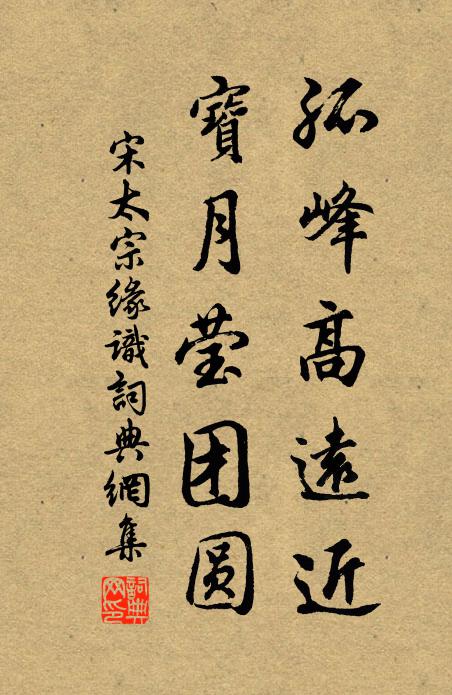 孤峰高遠近
寶月莹团圆
宋太宗緣識詞典網集
詞典网印